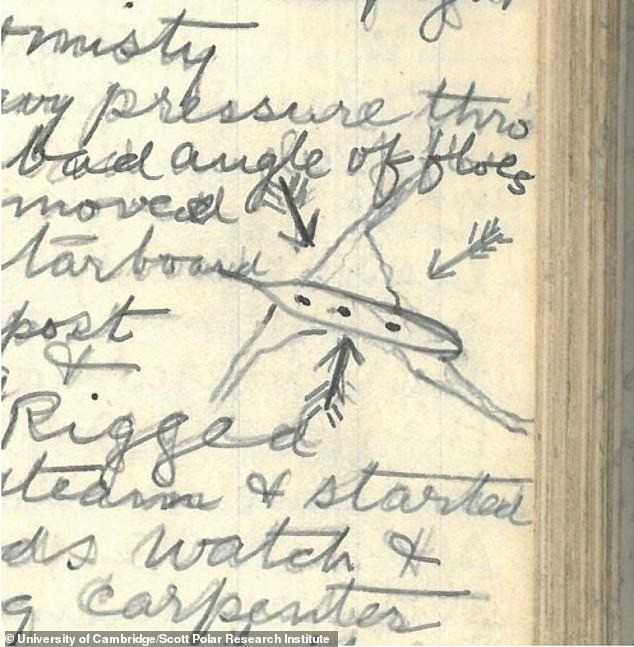 misty
pressure thro
bad angle of floes
moved
tarboard
post
&
Rigged
steam & started
ds watch &
g carpenter
© University of Cambridge/Scott Polar Research Institute